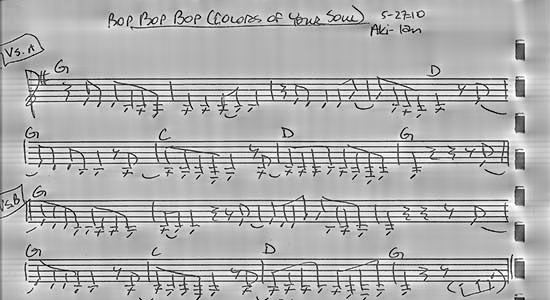 BOP BOP BOP (COLORS OF YOUR SOUL) 5-27-10
Aki-Ian
VS. A
G D
G C D G
VS. B G
G C D G